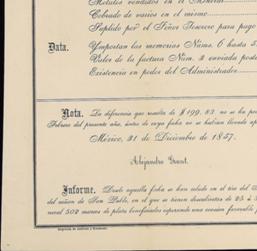 Metales vendidos en el Mineral
Cobrado de varios en el mismo
Suplido por el Señor Tesorero para pago
Data.
Ymportan las memorias Núms. 6 hasta 5
Valor de la factura Núm. 2 enviada poste
Existencia en poder del Administrador
Nota. La diferencia que resulta de $ 199, 82. no se ha po
Febrero del presente año, antes de cuya fecha no se habían llevado
México, 31 de Diciembre de 1857.
Alejandro Grant.
Informe. Desde aquella fecha se han sacado en el tiro del
del mineral de San Pablo, en el que se tienen descubiertas de 25 á
neral 502 marcos de plata beneficiados esperando una